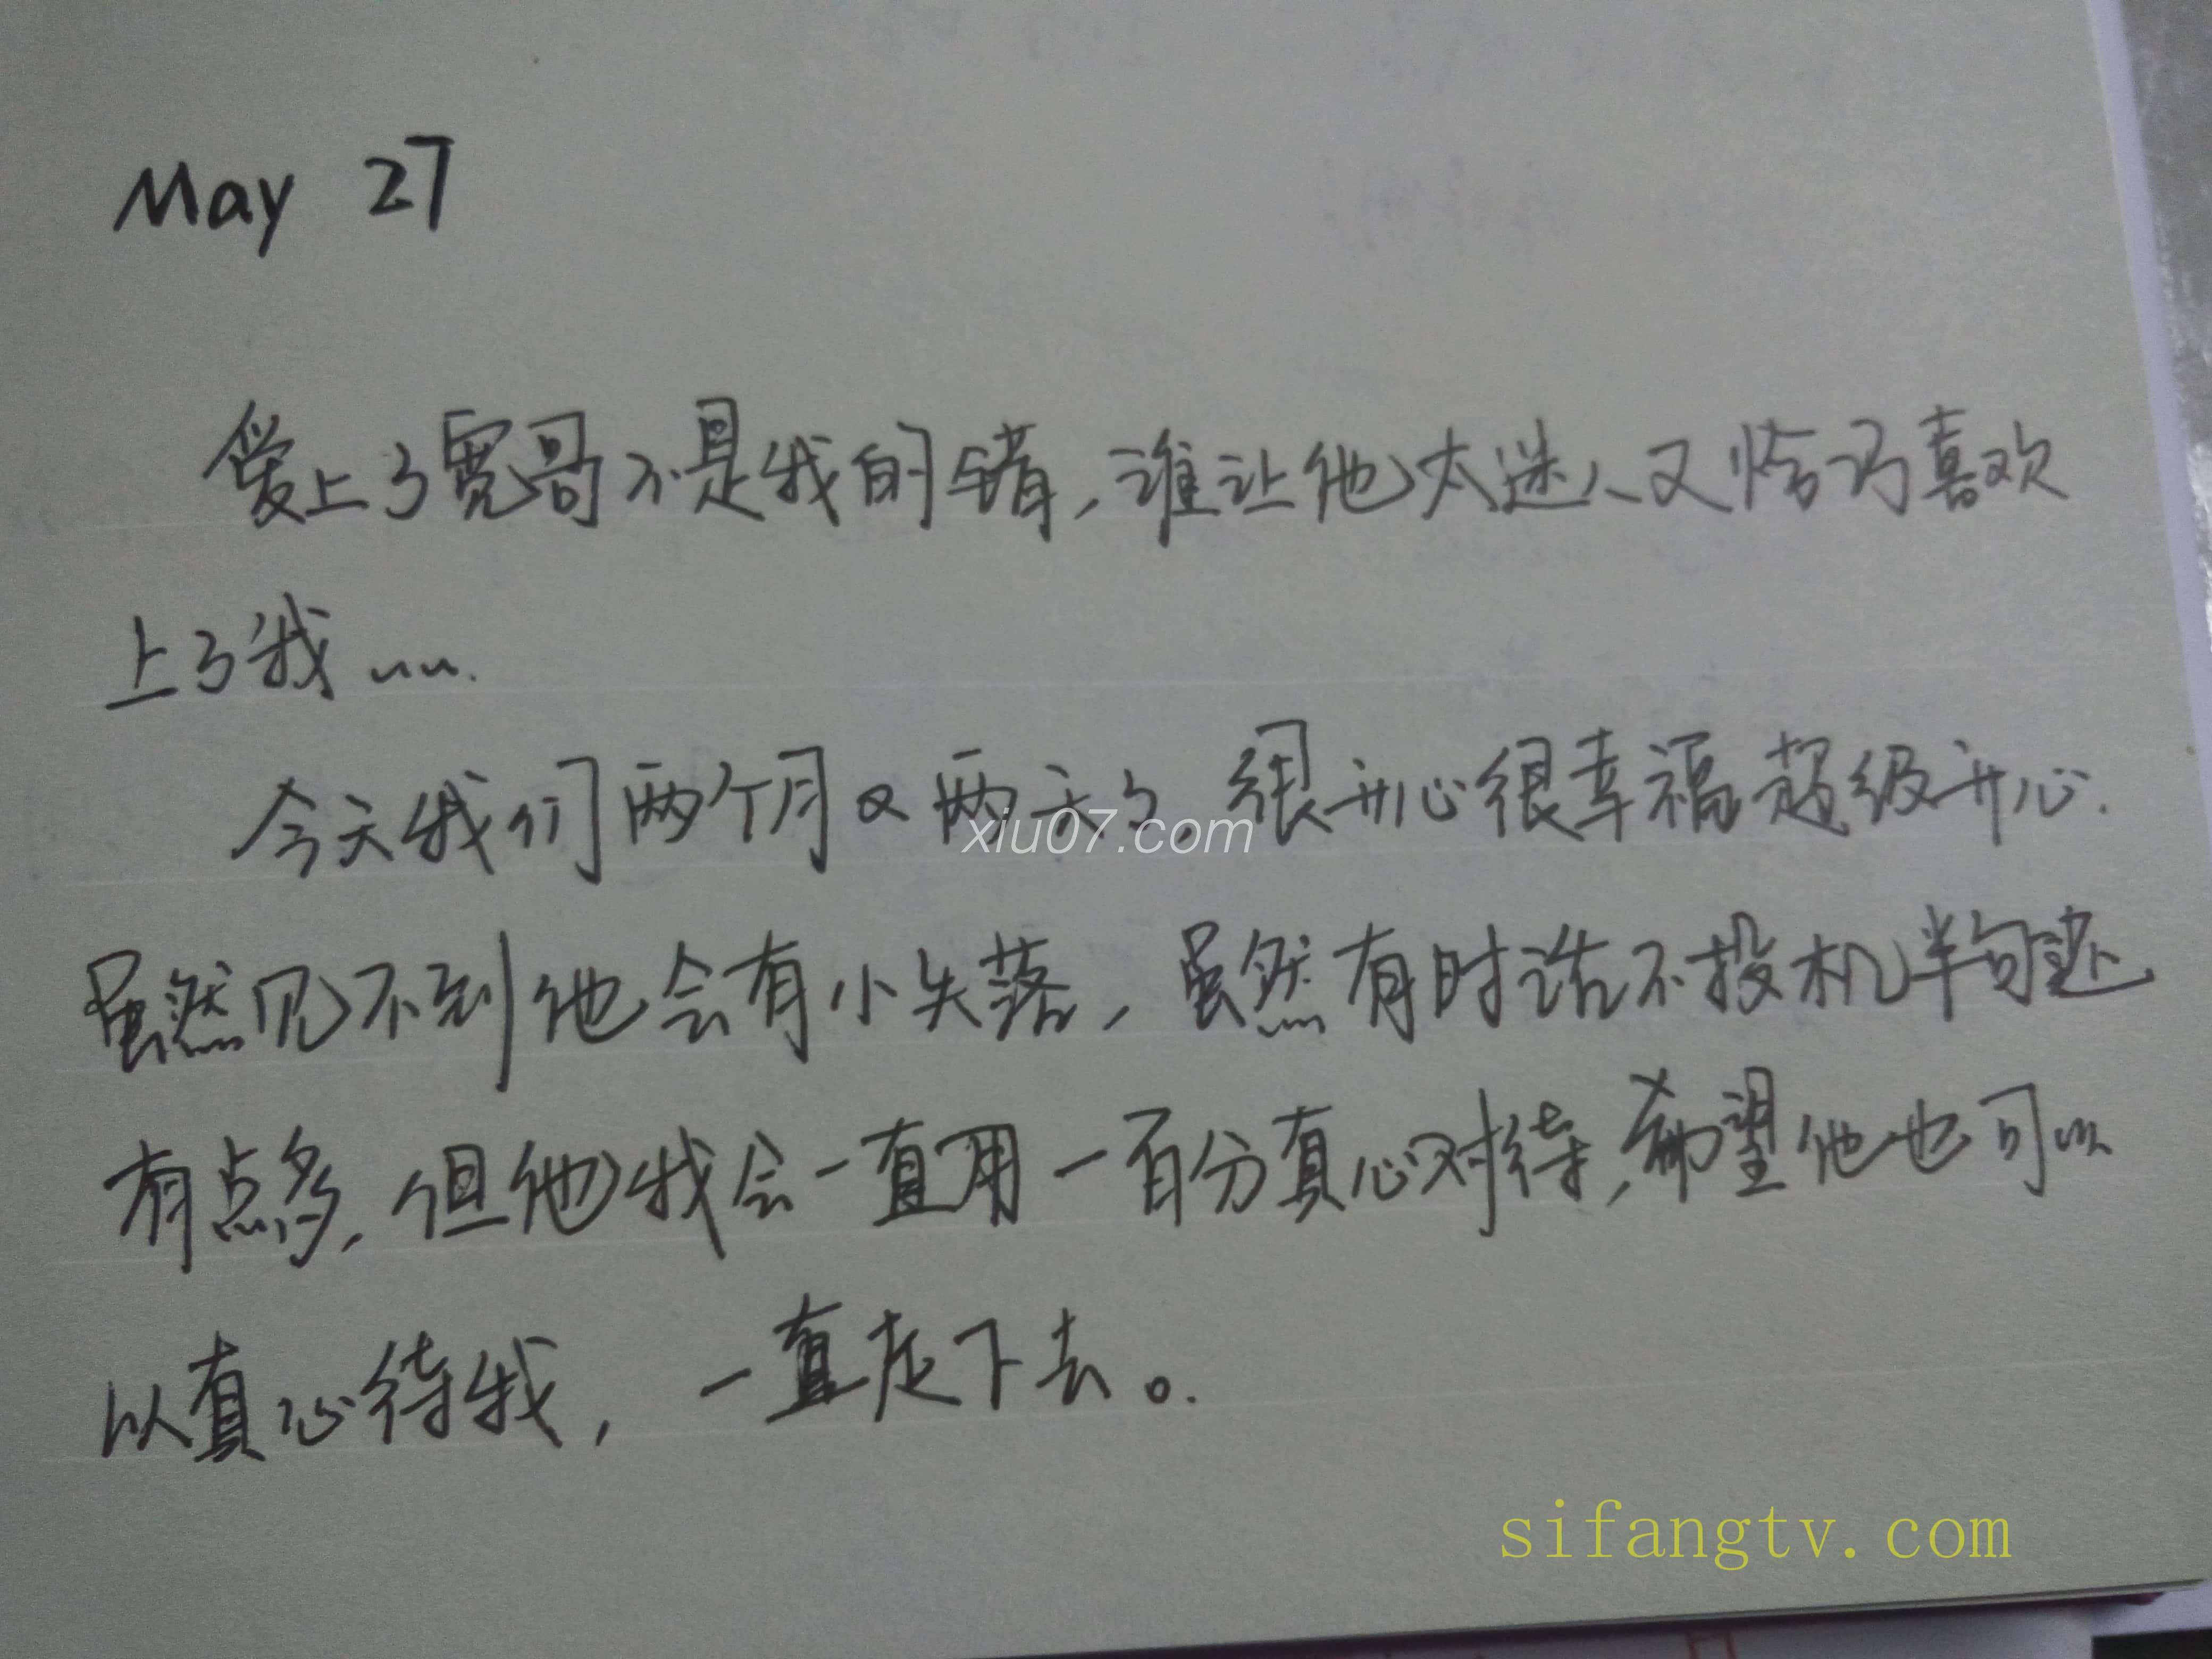 May 27
爱上了宽哥不是我的错，谁让他太迷人又恰巧喜欢
上了我……
今天我们两个月又两天了。很开心很幸福超级开心.
xiu07.com
虽然见不到他会有小失落，虽然有时话不投机半句还
有点多，但他我会一直用一百分真心对待，希望他也可以
以真心待我，一直走下去。
sifangtv.com